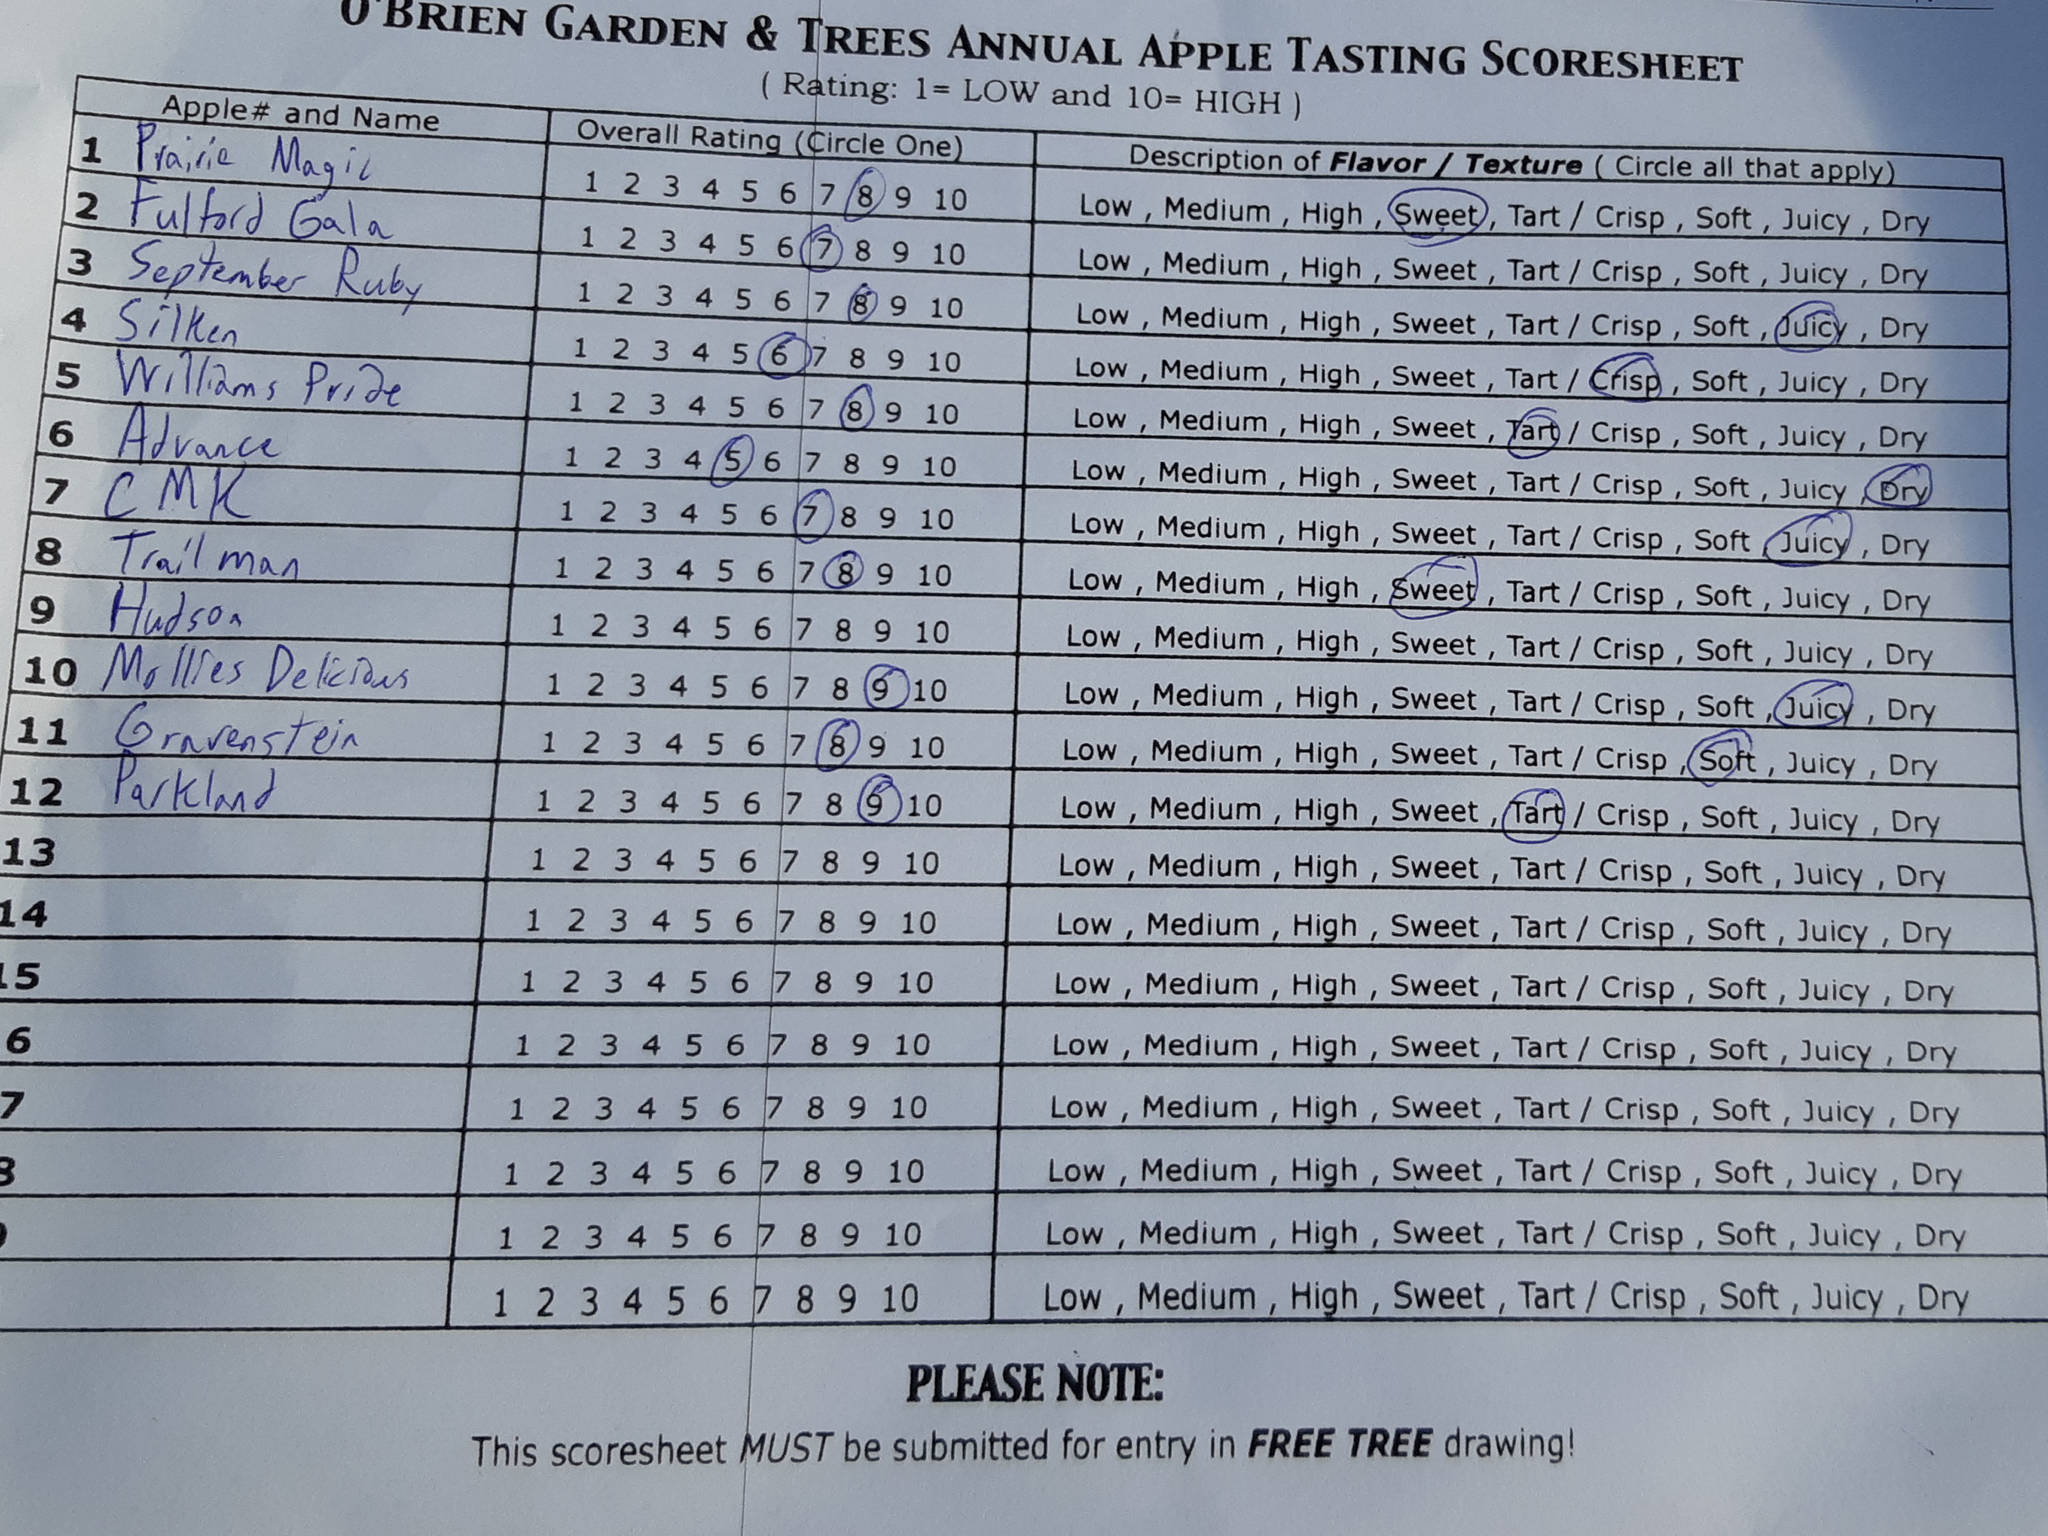 O'BRIEN GARDEN & TREES ANNUAL APPLE TASTING SCORESHEET
( Rating: 1= LOW and 10= HIGH )
Apple# and Name Overall Rating (Circle One) Description of Flavor / Texture ( Circle all that apply)
1 Prairie Magic 1 2 3 4 5 6 7 8 9 10 Low , Medium , High , Sweet , Tart / Crisp , Soft , Juicy , Dry
2 Fulford Gala 1 2 3 4 5 6 7 8 9 10 Low , Medium , High , Sweet , Tart / Crisp , Soft , Juicy , Dry
3 September Ruby 1 2 3 4 5 6 7 8 9 10 Low , Medium , High , Sweet , Tart / Crisp , Soft , Juicy , Dry
4 Silken 1 2 3 4 5 6 7 8 9 10 Low , Medium , High , Sweet , Tart / Crisp , Soft , Juicy , Dry
5 Williams Pride 1 2 3 4 5 6 7 8 9 10 Low , Medium , High , Sweet , Tart / Crisp , Soft , Juicy , Dry
6 Advance 1 2 3 4 5 6 7 8 9 10 Low , Medium , High , Sweet , Tart / Crisp , Soft , Juicy , Dry
7 CMK 1 2 3 4 5 6 7 8 9 10 Low , Medium , High , Sweet , Tart / Crisp , Soft , Juicy , Dry
8 Trailman 1 2 3 4 5 6 7 8 9 10 Low , Medium , High , Sweet , Tart / Crisp , Soft , Juicy , Dry
9 Hudson 1 2 3 4 5 6 7 8 9 10 Low , Medium , High , Sweet , Tart / Crisp , Soft , Juicy , Dry
10 Mollies Delicious 1 2 3 4 5 6 7 8 9 10 Low , Medium , High , Sweet , Tart / Crisp , Soft , Juicy , Dry
11 Gravenstein 1 2 3 4 5 6 7 8 9 10 Low , Medium , High , Sweet , Tart / Crisp , Soft , Juicy , Dry
12 Parkland 1 2 3 4 5 6 7 8 9 10 Low , Medium , High , Sweet , Tart / Crisp , Soft , Juicy , Dry
13 1 2 3 4 5 6 7 8 9 10 Low , Medium , High , Sweet , Tart / Crisp , Soft , Juicy , Dry
14 1 2 3 4 5 6 7 8 9 10 Low , Medium , High , Sweet , Tart / Crisp , Soft , Juicy , Dry
15 1 2 3 4 5 6 7 8 9 10 Low , Medium , High , Sweet , Tart / Crisp , Soft , Juicy , Dry
6 1 2 3 4 5 6 7 8 9 10 Low , Medium , High , Sweet , Tart / Crisp , Soft , Juicy , Dry
7 1 2 3 4 5 6 7 8 9 10 Low , Medium , High , Sweet , Tart / Crisp , Soft , Juicy , Dry
8 1 2 3 4 5 6 7 8 9 10 Low , Medium , High , Sweet , Tart / Crisp , Soft , Juicy , Dry
1 2 3 4 5 6 7 8 9 10 Low , Medium , High , Sweet , Tart / Crisp , Soft , Juicy , Dry
1 2 3 4 5 6 7 8 9 10 Low , Medium , High , Sweet , Tart / Crisp , Soft , Juicy , Dry
PLEASE NOTE:
This scoresheet MUST be submitted for entry in FREE TREE drawing!